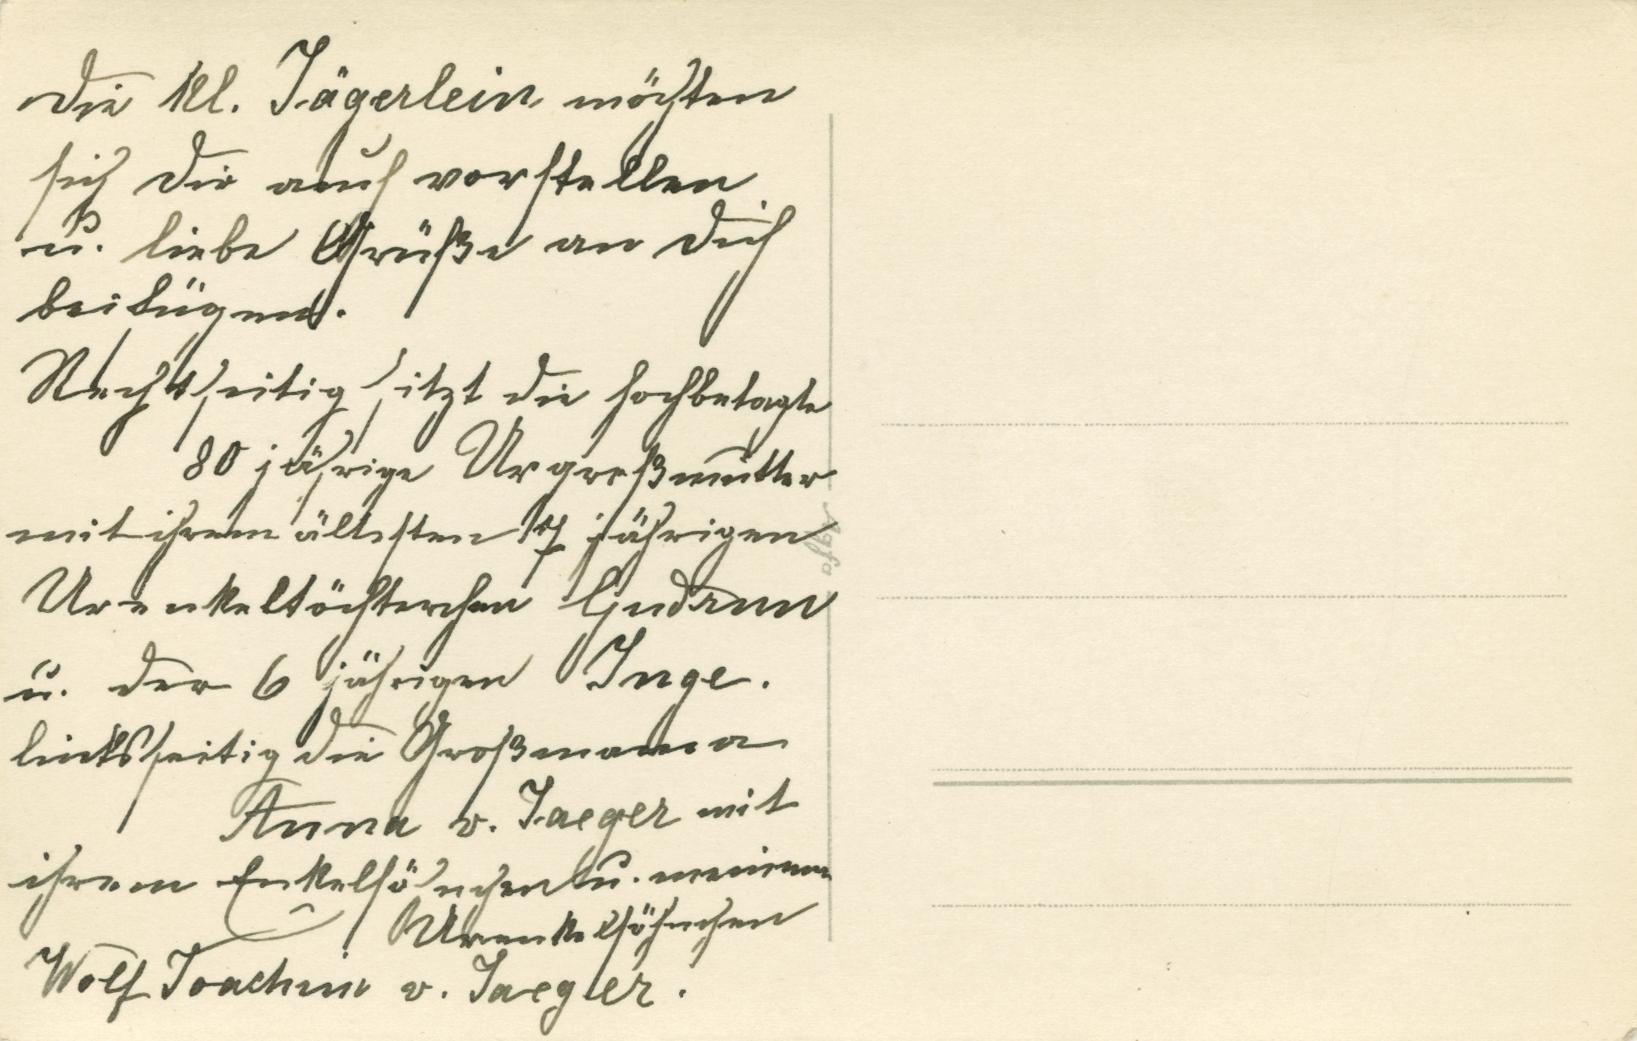 Die kl. Jägerlein möchten
sich Dir auch vorstellen
u. liebe Grüße an Dich
beifügen.
Rechtseitig sitzt die hochbetagte
80 jährige Urgroßmutter
mit ihrem ältesten 7 jährigen
Urenkeltöchterchen Gudrun
u. der 6 jährigen Inge.
linksseitig die Großmama
Anna v. Jaeger mit
ihrem Enkelsöhnchen u. meinem
Urenkelsöhnchen
Wolf Joachim v. Jaeger.
Agfa